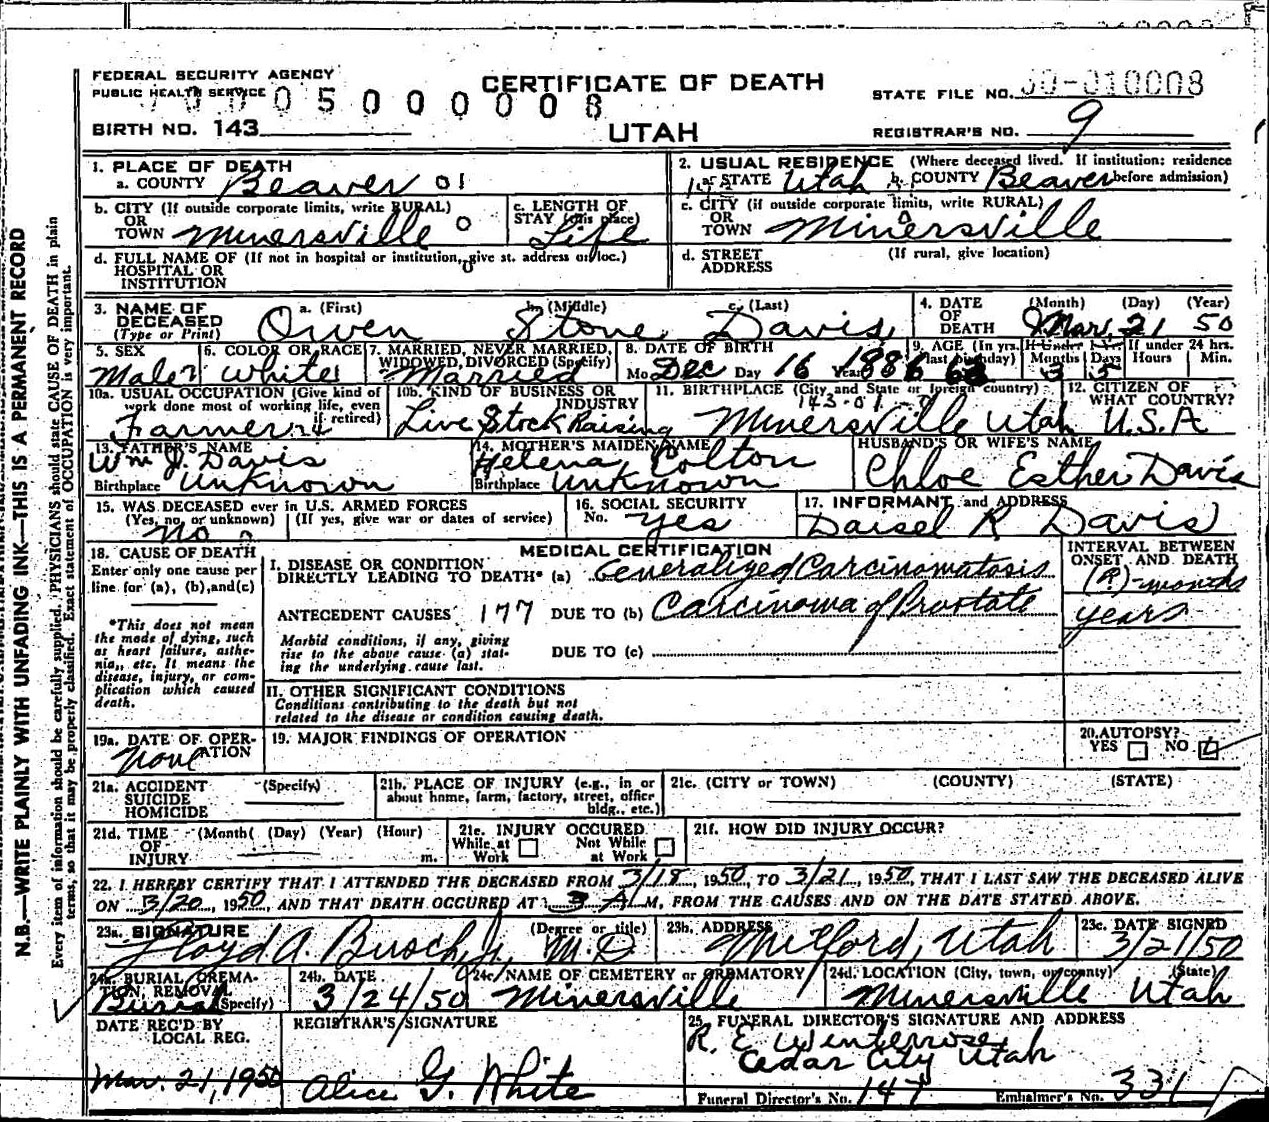 FEDERAL SECURITY AGENCY
PUBLIC HEALTH SERVICE
CERTIFICATE OF DEATH
STATE FILE NO. 50-010008
0005000008
BIRTH NO. 143
UTAH
REGISTRAR'S NO. 9
1. PLACE OF DEATH
a. COUNTY Beaver 01
2. USUAL RESIDENCE (Where deceased lived. If institution: residence before admission)
a. STATE Utah b. COUNTY Beaver
b. CITY (If outside corporate limits, write RURAL) OR TOWN Minersville 0
c. LENGTH OF STAY (this place) Life
c. CITY (if outside corporate limits, write RURAL) OR TOWN Minersville
d. FULL NAME OF (If not in hospital or institution, give st. address or loc.) HOSPITAL OR INSTITUTION
d. STREET ADDRESS (If rural, give location)
3. NAME OF DECEASED (Type or Print)
a. (First) Orven b. (Middle) Stone c. (Last) Davis
4. DATE OF DEATH (Month) (Day) (Year) Mar. 21 50
5. SEX Male
6. COLOR OR RACE White
7. MARRIED, NEVER MARRIED, WIDOWED, DIVORCED (Specify) Married
8. DATE OF BIRTH Mo. Dec Day 16 Year 1886
9. AGE (In yrs. last birthday) 63 If Under 1 Yr. Months 3 Days 5 If under 24 hrs. Hours Min.
10a. USUAL OCCUPATION (Give kind of work done most of working life, even if retired) Farmer
10b. KIND OF BUSINESS OR INDUSTRY Live Stock Raising
11. BIRTHPLACE (City and State or foreign country) 143-01-0 Minersville Utah
12. CITIZEN OF WHAT COUNTRY? U.S.A
13. FATHER'S NAME Wm J. Davis
Birthplace Unknown
14. MOTHER'S MAIDEN NAME Helena Colton
Birthplace Unknown
HUSBAND'S OR WIFE'S NAME Chloe Esther Davis
15. WAS DECEASED ever in U.S. ARMED FORCES (Yes, no, or unknown) (If yes, give war or dates of service) No
16. SOCIAL SECURITY No. yes
17. INFORMANT and ADDRESS Daisel R Davis
18. CAUSE OF DEATH
Enter only one cause per line for (a), (b), and (c)
*This does not mean the mode of dying, such as heart failure, asthenia, etc. It means the disease, injury, or complication which caused death.
MEDICAL CERTIFICATION
INTERVAL BETWEEN ONSET AND DEATH
I. DISEASE OR CONDITION DIRECTLY LEADING TO DEATH* (a) Generalized Carcinomatosis (?)-months
ANTECEDENT CAUSES 177 DUE TO (b) Carcinoma of Prostate years
Morbid conditions, if any, giving rise to the above cause (a) stating the underlying cause last.
DUE TO (c)
II. OTHER SIGNIFICANT CONDITIONS
Conditions contributing to the death but not related to the disease or condition causing death.
19a. DATE OF OPERATION None
19. MAJOR FINDINGS OF OPERATION
20. AUTOPSY? YES NO
21a. ACCIDENT SUICIDE HOMICIDE (Specify)
21b. PLACE OF INJURY (e.g., in or about home, farm, factory, street, office bldg., etc.)
21c. (CITY or TOWN) (COUNTY) (STATE)
21d. TIME OF INJURY (Month) (Day) (Year) (Hour) m.
21e. INJURY OCCURED While at Work Not While at Work
21f. HOW DID INJURY OCCUR?
22. I HEREBY CERTIFY THAT I ATTENDED THE DECEASED FROM 3/18, 1950, TO 3/21, 1950, THAT I LAST SAW THE DECEASED ALIVE
ON 3/20, 1950, AND THAT DEATH OCCURED AT 3 A M, FROM THE CAUSES AND ON THE DATE STATED ABOVE.
23a. SIGNATURE (Degree or title) Lloyd A. Busch, Jr. M.D
23b. ADDRESS Milford, Utah
23c. DATE SIGNED 3/21/50
24a. BURIAL, CREMATION, REMOVAL (Specify) Burial
24b. DATE 3/24/50
24c. NAME OF CEMETERY or CREMATORY Minersville
24d. LOCATION (City, town, or county) (State) Minersville Utah
DATE REC'D BY LOCAL REG. Mar. 21, 1950
REGISTRAR'S SIGNATURE Alice G. White
25. FUNERAL DIRECTOR'S SIGNATURE AND ADDRESS
R. E. Winterrose
Cedar City Utah
Funeral Director's No. 147 Embalmer's No. 331
N.B.—WRITE PLAINLY WITH UNFADING INK—THIS IS A PERMANENT RECORD
Every item of information should be carefully supplied. PHYSICIANS should state CAUSE OF DEATH in plain
terms, so that it may be properly classified. Exact statement of OCCUPATION is very important.